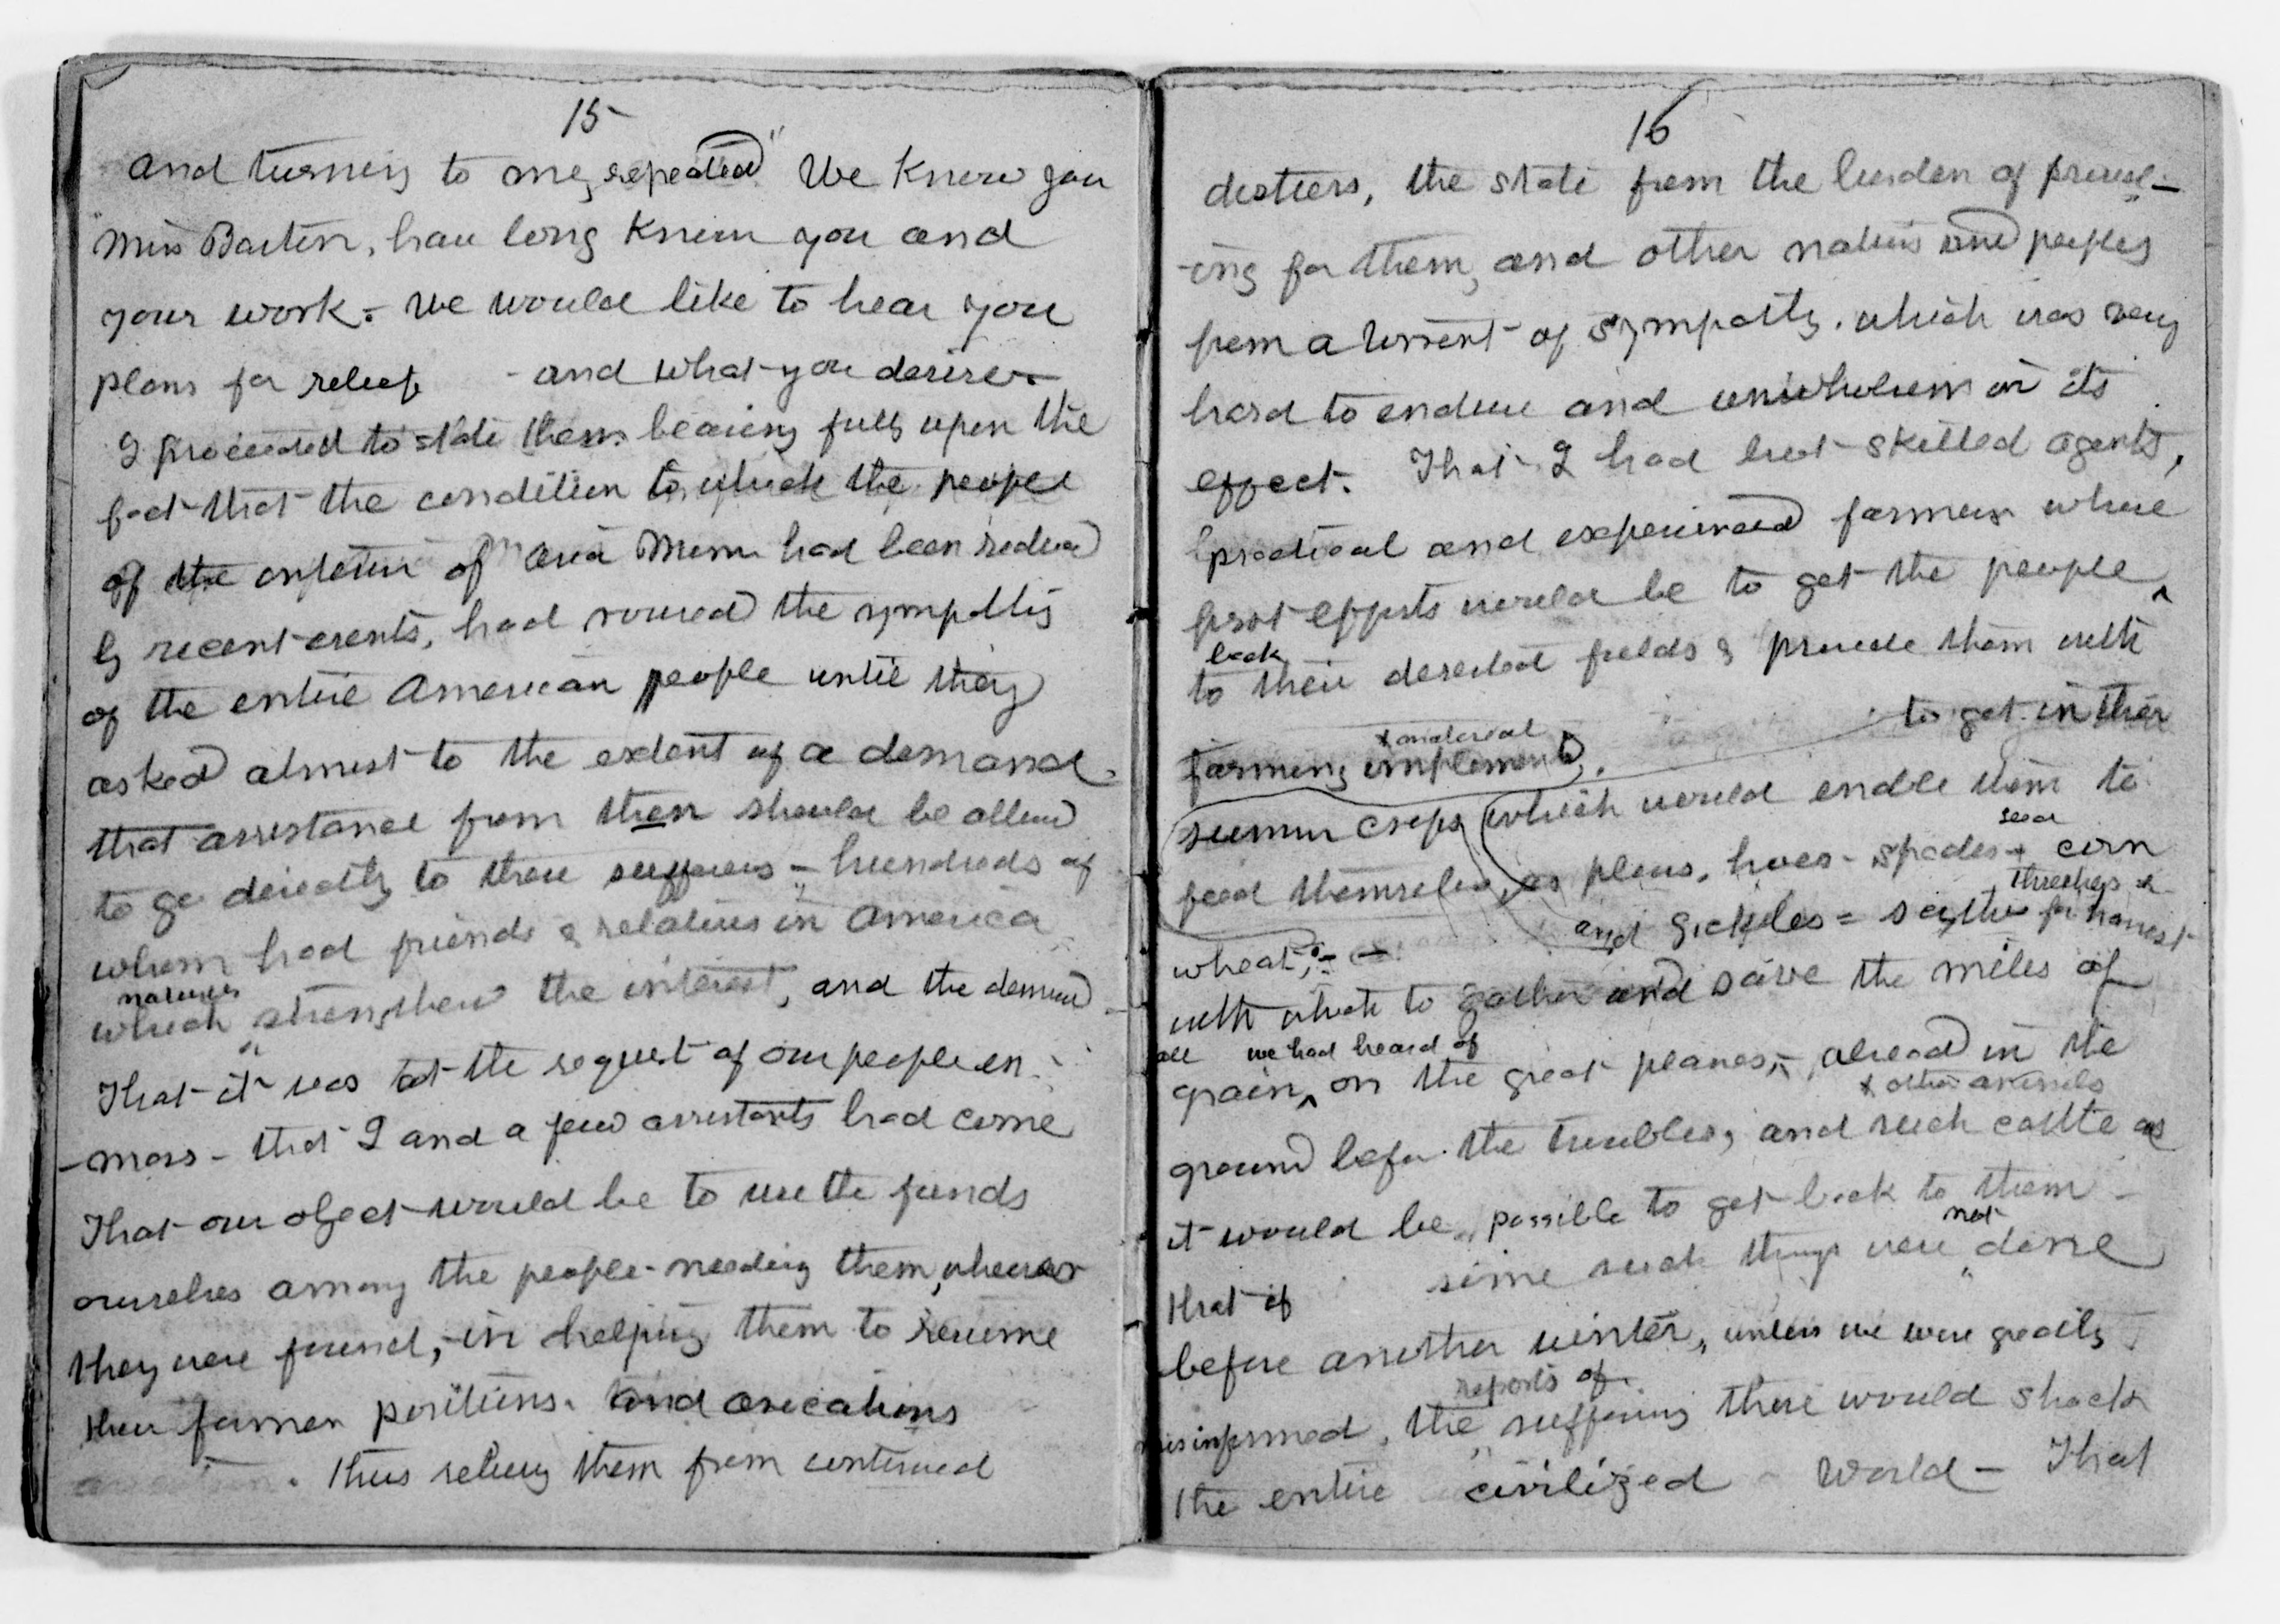 15
and turning to me, repeated "We know you
Miss Barton, have long known you and
your work. - We would like to hear you
plans for relief - and what you desire. -
I proceeded to state them bearing fully upon the
fact that the condition to which the people
of the interior of Asia Minor had been reduced
by recent events, had roused the sympathies
of the entire American people until they
asked almost to the extent of a demand
that assistance from them should be allowed
to go directly to these sufferers - hundreds of
whom had friends & relatives in America
which naturally strengthened the interest, and the demand
That it was at the request of our people en -
- mass - that I and a few assistants had come
That our object would be to use the funds
ourselves among the people needing them, wherever
they were found, - in helping them to resume
their former positions. and avocations
. Thus relieving them from continued
16
distress, the state from the burden of provid -
- ing for them, and other nations and peoples
from a torrent of sympathy. which was very
hard to endure and unwholesom in its
effect. That I had but skilled agents,
practical and experienced farmers whose
first efforts would be to get the people
back
to their deserted fields & provide them with
to get in their
& material
farming implements.
summer crops which would enable them to
feed themselves, as plows, hoes - spades - seed corn
wheat, - and sickles = scythes threshers & for harvest
with which to gather and save the miles of
all we had heard of
grain on the great planes, - already in the
& other animals
ground before the troubles, and such cattle as
it would be possible to get back to them -
that if some such things were not done
before another winter, unless we were greatly
reports of
misinformed, the suffering there would shock
the entire civilized World - That